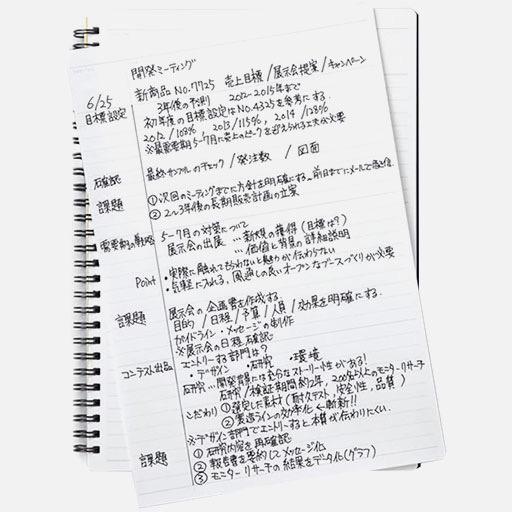 開発ミーティング
6/25 新商品 No.7725 売上目標/展示会提案/キャンペーン
目標設定 3年後の予測 2012-2015年まで
初年度の目標設定はNo.4325を参考にする
2012/108% 2013/115% 2014/128%
※最需要期5-7月に売上のピークを迎えられる工夫が必要
確認 最終サンプルのチェック/発注数/図面
課題 ①次回のミーティングまでに方針を明確にする→前日までにメールで送信
②2〜3年後の長期販売計画の立案
需要期の戦略 5-7月の対策について
展示会の出展 …新規の獲得(目標は?)
…価値と背景の詳細説明
Point ・実際に触れてもらわないと魅力が伝わらない
・気軽に入れる、風通しの良いオープンなブースづくりが必要
課題 展示会の企画書を作成する
目的/日程/予算/人員/効果を明確にする
ガイドライン・メッセージの制作
※展示会の日程確認
コンテスト出品 エントリーする部門は?
・デザイン ・研究 ・環境
研究…開発背景には充分なストーリー性がある!
研究/検証期間約2年、200名以上のモニターリサーチ
こだわり ①選定した素材(耐久テスト、安全性、品質)
②製造ラインの効率化←斬新!!
※デザイン部門でエントリーすると本質が伝わりにくい
課題 ①研究内容を再確認
②報告書を要約してメッセージ化
③モニターリサーチの結果をデータ化(グラフ)